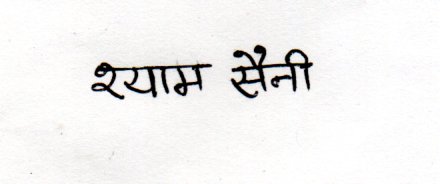 श्याम सैनी